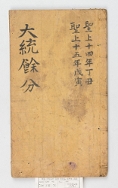 聖上十四年丁丑
聖上十五年戊寅
大統餘分